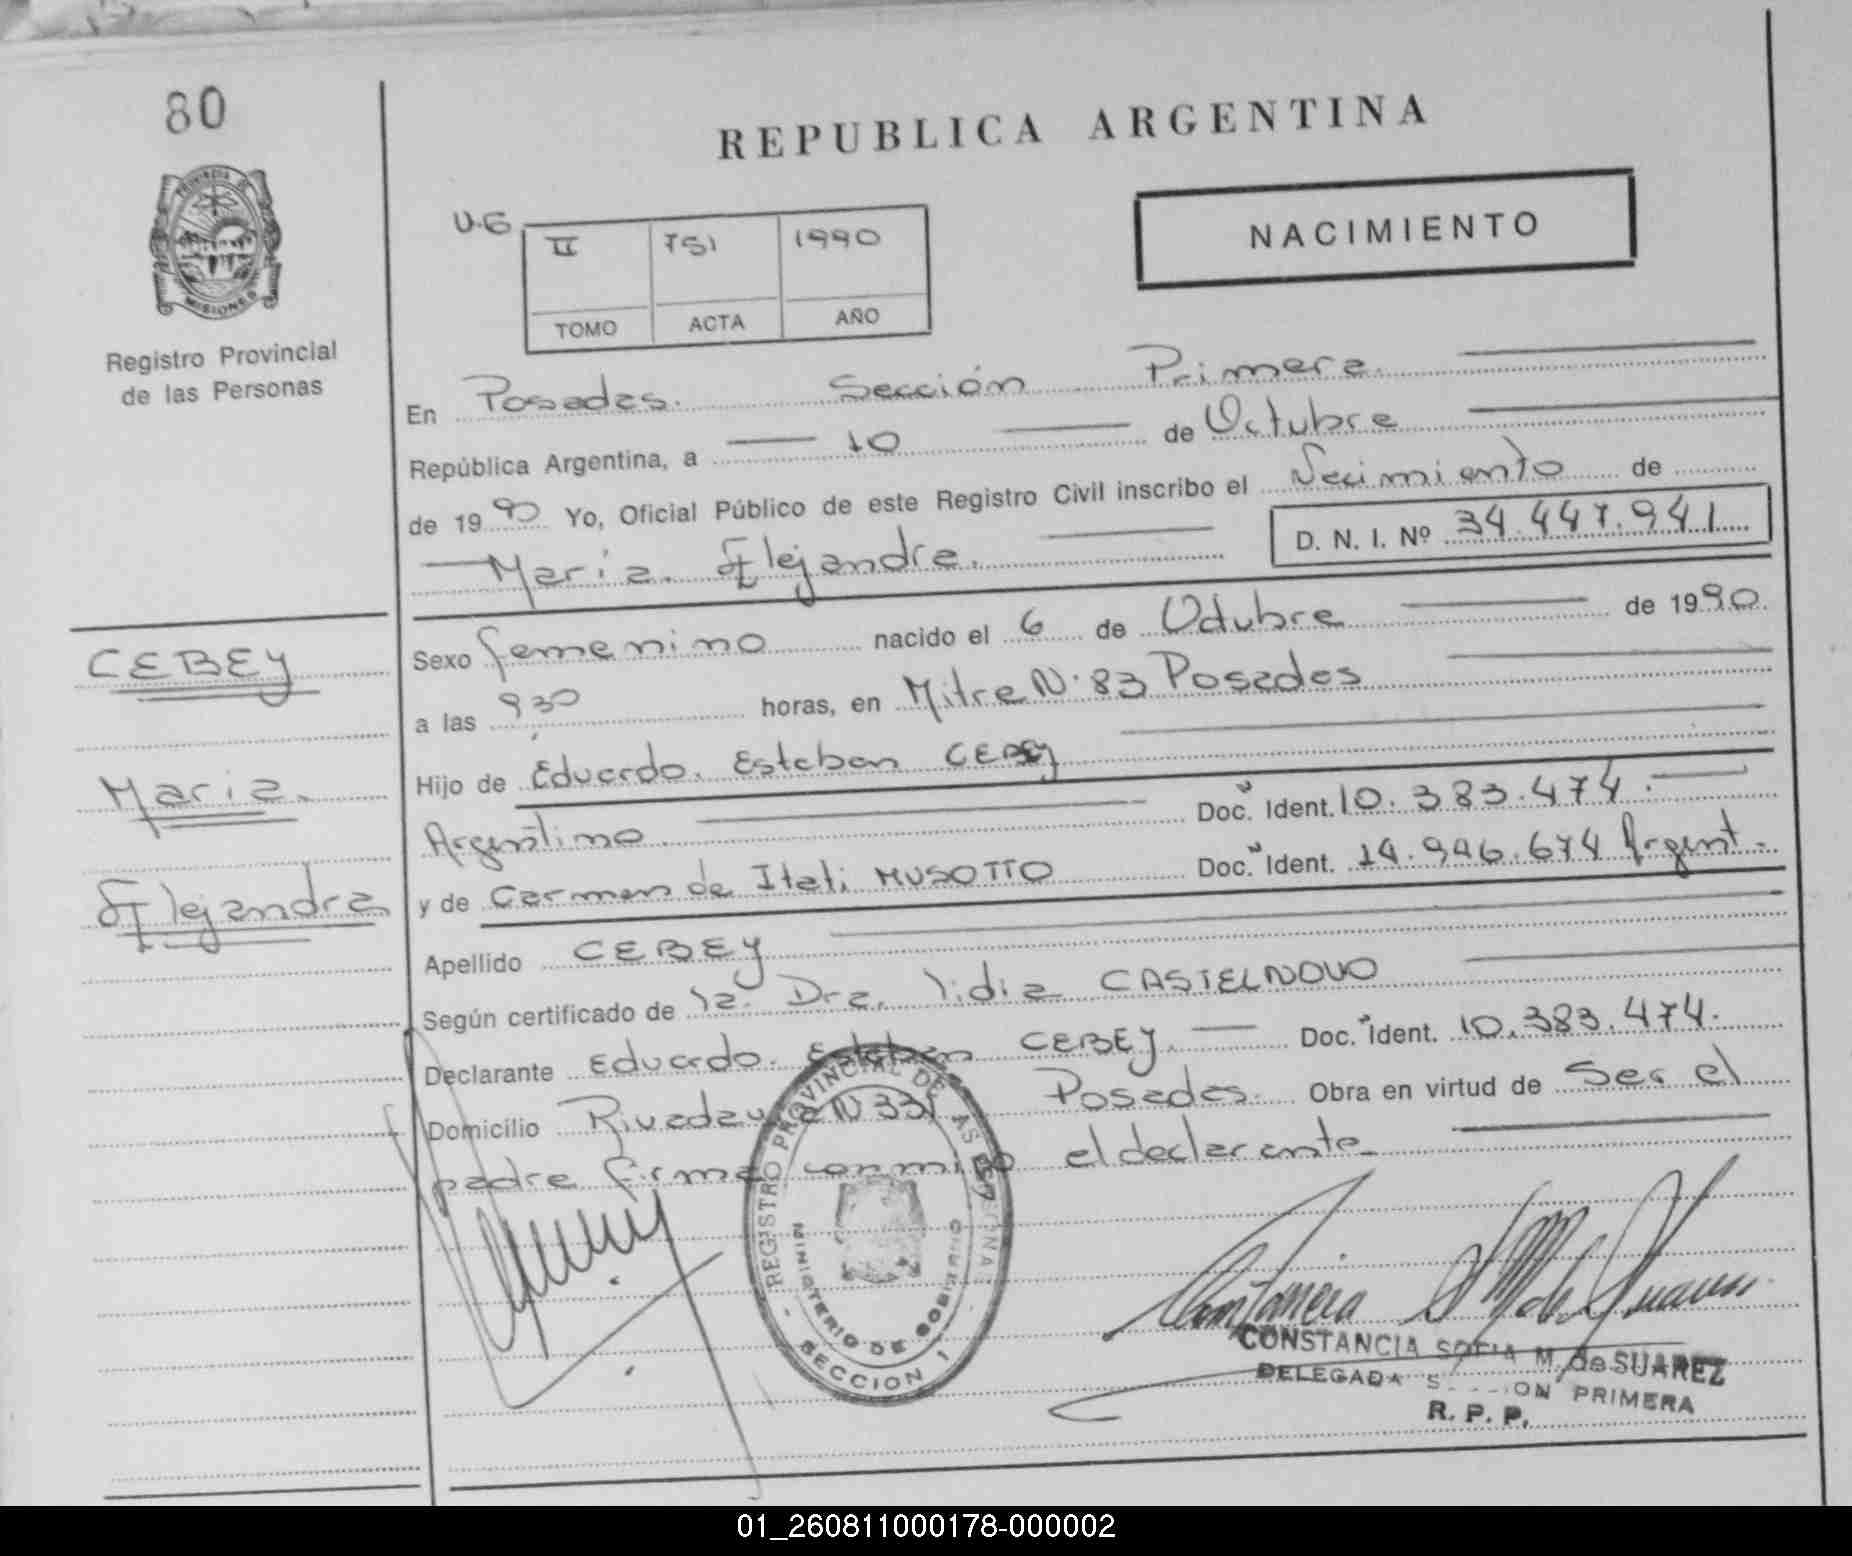 80
REPUBLICA ARGENTINA
PROVINCIA DE
MISIONES
Registro Provincial
de las Personas
NACIMIENTO
II 751 1990
TOMO ACTA AÑO
En Posadas. Sección Primera.
República Argentina, a 10 de Octubre
de 1990 Yo, Oficial Público de este Registro Civil inscribo el Nacimiento de
Maria Alejandra. D. N. I. Nº 34.447.941
CEBEY
Maria
Alejandra
Sexo femenino nacido el 6 de Octubre de 1990.
a las 930 horas, en Mitre Nº 83 Posadas
Hijo de Eduardo Esteban CEBEY
Argentino Doc. Ident. 10.383.474.
y de Carmen de Itati MUSOTTO Doc. Ident. 14.946.674 Argent.
Apellido CEBEY
Según certificado de la Dra. Lidia CASTELNOVO
Declarante Eduardo Esteban CEBEY. Doc. Ident. 10.383.474.
Domicilio Rivadavia N 331 Posadas. Obra en virtud de Ser el
padre firma conmigo el declarante.
REGISTRO PROVINCIAL DE LAS PERSONAS
MINISTERIO DE GOBIERNO
SECCION 1
CONSTANCIA SOFIA M. de SUAREZ
DELEGADA PRIMERA
R. P. P.
01_260811000178-000002